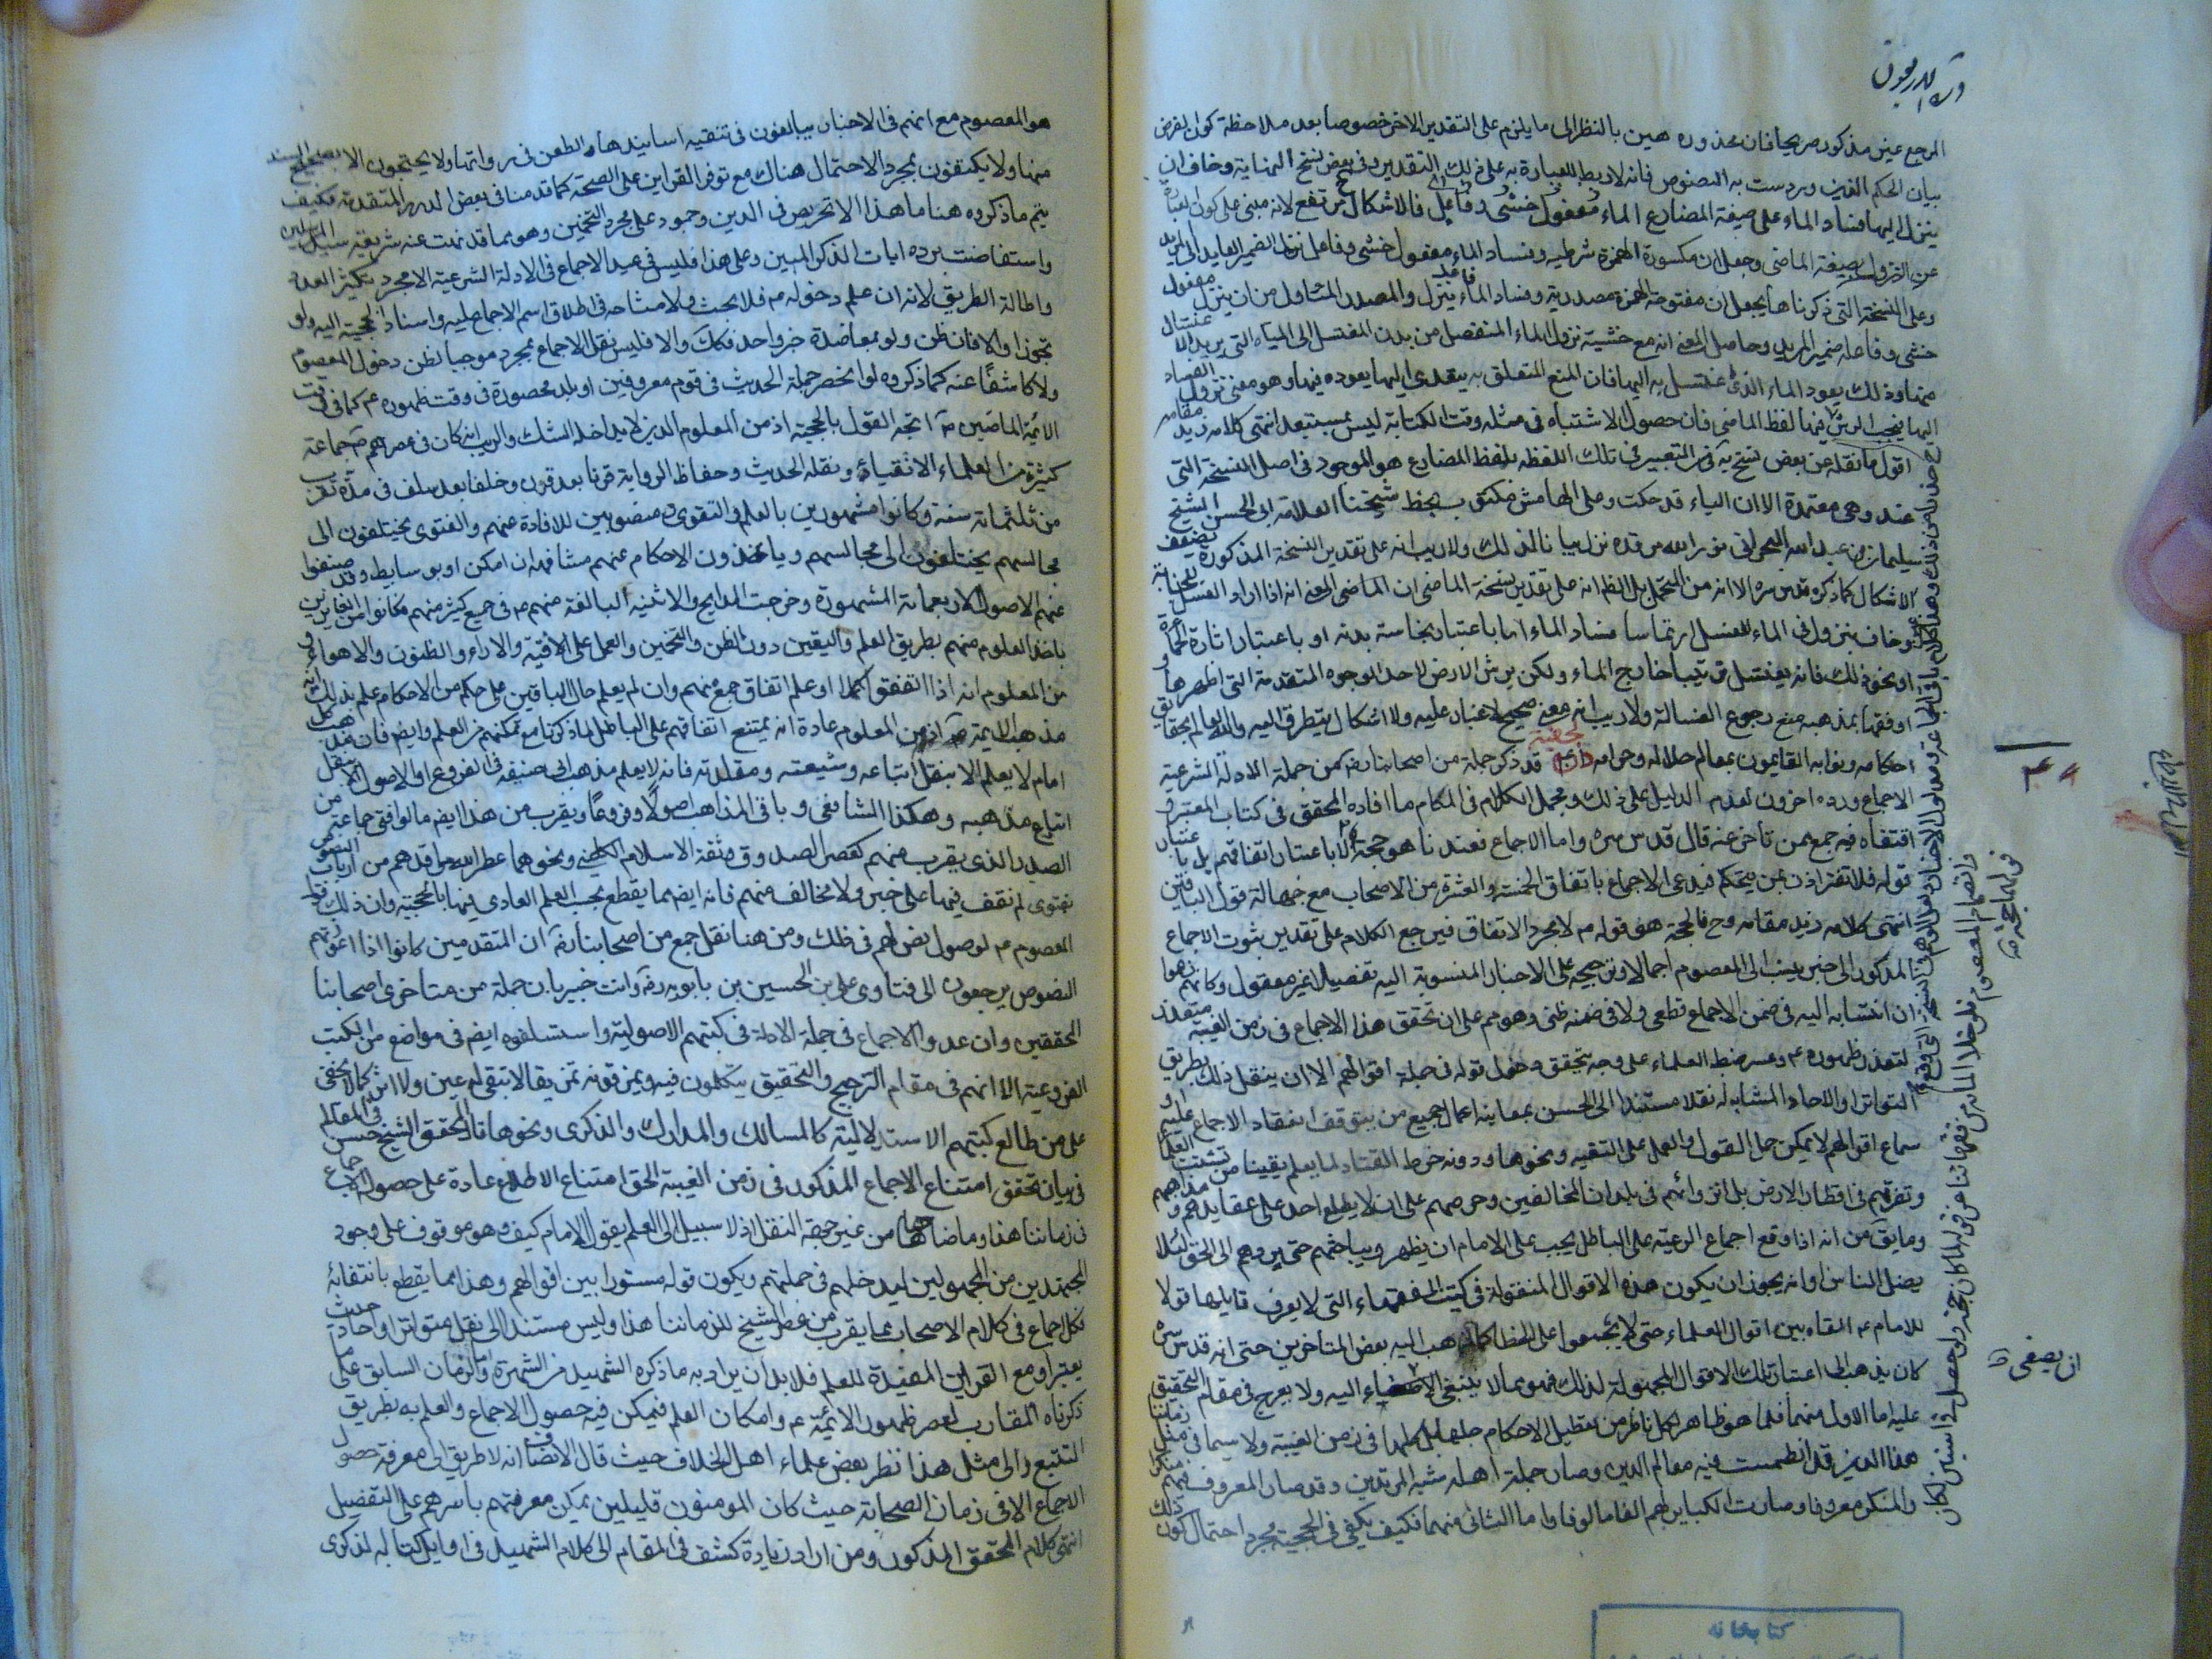 المرجع عين مذكور صريحا فان محذوره هين بالنظر الى ما يلزم على التقدير الاخر خصوصا بعد ملاحظة كون الغرض
بيان الحكم الذي وردت به النصوص فانه لا ربط للعبارة به على ذلك التقدير وفي بعض نسخ النهاية وخاف ان
ينزل اليها فساد الماء على صيغة المضارع الماء مفعول خشي وفاعل فالاشكال مرتفع لانه مبني على كون العبارة
عن النزول بصيغة الماضي وجعل ان مكسورة الهمزة شرطية وفساد الماء مفعول خشي وفاعل نزل الضمير العايد الى المريد
وعلى النسخة التي ذكرناها يجعل ان مفتوحة الهمزة مصدرية وفساد الماء فاعل ينزل والمصدر المأول من ان ينزل مفعول
خشي وفاعله ضمير المريد وحاصل المعنى انه مع خشية نزول الماء المنفصل من بدن المغتسل الى المياه التي يريد الاغتسال
منها وذلك بعود الماء الذي اغتسل به اليها فان المنع المتعلق به يتعدى اليها بعوده فيها وهو معنى نزول الفساد
اليها فيجب الرش فيها لفظ الماضي فان حصول الاشتباه في مثله وقت الكتابة ليس بمستبعد انتهى كلامه زيد مقامه
اقول ما نقله عن بعض نسخ به في التعبير في تلك اللفظة بلفظ المضارع هو الموجود في اصل النسخة التي
عند وهي معتمدة الا ان الياء قد حكت وعلى الهامش مكتوب بخط شيخنا العلامة ابى الحسن الشيخ
سليمان بن عبد الله البحراني نور الله مرقده نزل بيانا لذلك ولا ريب انه على تقدير النسخة المذكورة يضعف
الاشكال كما ذكره قدس سره الا انه من المحتمل بل الظ انه على تقدير نسخة الماضي ان الماضي المعنى انه اذا اراد الغسل للجنابة
وخاف بنزول في الماء للغسل ارتماسا فساد الماء اما باعتبار نجاسة بدنه او باعتبار اثارة الحماة
او نحو ذلك فانه يغتسل ترتيبا خارج الماء ولكن يرش الارض لاحد الوجوه المتقدمة التي اظهرها
اوفقها بمذهبه منع رجوع الغسالة ولا ريب انه معنى صحيح لا غبار عليه ولا اشكال يتطرق اليه والله العالم بحقايق
احكامه ونوابه القايمون بمعالم حلاله وحرامه قد ذكر جملة من اصحابنا رضه من جملة الادلة الشرعية
الاجماع ورده اخرون لعدم الدليل على ذلك ومجمل الكلام في المكام ما افاده المحقق في كتاب المعتبر و
اقتفاه فيه جمع ممن تأخر عنه قال قدس سره واما الاجماع فعندنا هو حجة لا باعتبار اتفاقهم بل باعتبار
قوله فلا تغتر اذن بمن يتحكم فيدعي الاجماع باتفاق الخمسة والعشرة من الاصحاب مع جهالة قول الباقين
انتهى كلامه زيد مقامه وح فالحجة هو قوله ع لا مجرد الاتفاق فيرجع الكلام على تقدير ثبوت الاجماع
المذكور الى خبر ينسب الى المعصوم اجمالا وترجيحه على الاخبار المنسوبة اليه تفصيلا غير معقول وكانهم زعموا
ان انتسابه اليه في ضمن الاجماع قطعي ولا في ضمنه ظني وهو مم على ان تحقق هذا الاجماع في زمن الغيبة متعذر
لتعذر ظهوره ع وعسر ضبط العلماء على وجه يتحقق دخول قوله في جملة اقوالهم الا ان ينقل ذلك بطريق
التواتر او الاحاد المشابه له نقلا مستندا الى الحسن بمعاينة اعمال جميع من يتوقف انعقاد الاجماع عليهم او
سماع اقوالهم لا يمكن حمل القول والعمل على التقيه ونحوها ودونه خرط القتاد لما يعلم يقينا من تشتت العلما
وتفرقهم في اقطار الارض بل انزوائهم في بلدان المخالفين وحرصهم على ان لا يطلع احد على عقايدهم ومذاهبهم
وما يق من انه اذا وقع اجماع الرعية على الباطل يجب على الامام ان يظهر ويباحثهم حتى يردهم الى الحق لئلا
يضل الناس او انه يجوز ان يكون هذه الاقوال المنقولة في كتب الفقهاء التي لا يعرف قايلها قولا
للامام عه القاه بين اقوال العلماء حتى لا يجمعوا على الخطا كما ذهب اليه بعض المتاخرين حتى انه قدس سره
كان يذهب الى اعتبار تلك الاقوال المجهولة لذلك فهو مما لا ينبغي الاصغاء اليه ولا يعرج في مقام التحقيق
عليه اما الاول منهما فلما هو ظاهر لكل ناظر من تعطيل الاحكام جلها بل كلها في زمن الغيبة ولا سيما في مثل زماننا
هذا الذي قد انطمست فيه معالم الدين وصار جملة اهله شبه المرتدين وقد صار المعروف منهم منكرا
والمنكر معروفا وصارت الكباير لهم الفا مالوفا واما الثاني منهما فكيف يكفي في الحجية مجرد احتمال كون ذلك
ان يصغى
هو المعصوم مع انهم في الاخبار يبالغون في تنقيه اسانيدها والطعن في رواتها ولا يحتجون الا بصحيح السند
منها ولا يكتفون بمجرد الاحتمال هناك مع توفر القراين على الصحة كما قدمنا في بعض الدرر المتقدمة فكيف
يتم ما ذكروه هنا ما هذا الا تخرص في الدين وجمود على مجرد التخمين وهو مما قد نهت عنه شريعة سيد المرسلين
واستفاضت برده ايات الذكر المبين وعلى هذا فليس في عد الاجماع في الادلة الشرعية الا مجرد تكثير العدد
واطالة الطريق لانه ان علم دخوله ع فلا بحث ولا مشاحة في اطلاق اسم الاجماع عليه واسناد الحجية اليه ولو
تجوزا والا فان ظن ولو بمعاضدة خبر واحد فكك والا فليس نقل الاجماع بمجرده موجبا لظن دخول المعصوم
ولا كاشفا عنه كما ذكروه لو انحصر حملة الحديث في قوم معروفين او بلد محصورة في وقت ظهوره ع كما في وقت
الائمة الماضين ص اتجه القول بالحجية اذ من المعلوم الذي لا يداخله الشك والريب انه كان في عصرهم ص جماعة
كثيرة من العلماء الاتقياء ونقلة الحديث وحفاظ الرواية قرنا بعد قرن وخلفا بعد سلف في مدة تقرب
من ثلثمائة سنة وكانوا مشهورين بالعلم والتقوى ومنصوبين للافادة منهم والفتوى يختلفون الى
مجالسهم يختلفون الى مجالسهم وياخذون الاحكام عنهم مشافهة ان امكن او بوسايط وقد صنفوا
عنهم الاصول الاربعمائة المشهورة وخرجت المدايح والاثنية البالغة منهم ع في جميع كثير منهم فكانوا الفايزين
باخذ العلوم منهم بطريق العلم واليقين دون الظن والتخمين والعمل على الاقية والاراء والظنون والاهواء و
من المعلوم انه اذا اتفقوا كملا او علم اتفاق جمع منهم وان لم يعلم حال الباقين على حكم من الاحكام علم بذلك انه
مذهب الائمة ص اذ من المعلوم عادة انه يمتنع اتفاقهم على الباطل لما ذكرنا مع تمكنهم من العلم وايض فان مذهب كل
امام لا يعلم الا بنقل اتباعه وشيعته ومقلدته فانه لا يعلم مذهب ابي حنيفة في الفروع او الاصول الا بنقل
اتباع مذهبه وهكذا الشافعي وباقي المذاهب اصولا وفروعا ويقرب من هذا ايض ما لو افتى جماعة من
الصدر الذي يقرب منهم كعصر الصدوق وثقة الاسلام الكليني ونحوهما عطر الله مراقدهم من ارباب النصوص
بفتوى لم نقف فيها على خبر ولا مخالف منهم فانه ايض مما يقطع بحسب العلم العادي فيها بالحجية وان ذلك قول
المعصوم ع لوصول نص لهم في ذلك ومن هنا نقل جمع من اصحابنا رضه ان المتقدمين كانوا اذا اعوزتهم
النصوص يرجعون الى فتاوى علي بن الحسين بن بابويه رضه وانت خبير بان جملة من متاخرى اصحابنا
المحققين وان عدوا الاجماع في جملة الادلة في كتبهم الاصولية واستسلفوه ايض في مواضع من الكتب
الفروعية الا انهم في مقام الترجيح والتحقيق يتكلمون فيه ويمزقونه تمزيقا لا تبقى له عين ولا اثر كما لا يخفى
على من طالع كتبهم الاستدلالية كالمسالك والمدارك والذكرى ونحوها قال المحقق الشيخ حسن في المعالم
في بيان تحقق امتناع الاجماع المذكور في زمن الغيبة الحق امتناع الاطلاع عادة على حصول الاجماع
في زماننا هذا وما ضاهاه من غير جهة النقل اذ لا سبيل الى العلم بقول الامام كيف وهو موقوف على وجود
المجتهدين من المجهولين ليدخلهم في جملتهم ويكون قوله مستورا بين اقوالهم وهذا مما يقطع بانتفائه
فكل اجماع في كلام الاصحاب مما يقرب من عصر الشيخ للزماننا هذا وليس مستندا الى نقل متواتر او احاد حيث
يعتبر او مع القراين المفيدة للعلم فلا بد ان يراد به ما ذكره الشهيد من الشهرة واما الزمان السابق على ما
ذكرناه المقارب لعصر ظهور الائمة ع وامكان العلم فيمكن فيه حصول الاجماع والعلم به بطريق
التتبع والى مثل هذا نظر بعض علماء اهل الخلاف حيث قال الانصاف انه لا طريق الى معرفة حصول
الاجماع الا في زمان الصحابة حيث كان المومنون قليلين يمكن معرفتهم باسرهم على التفصيل
انتهى كلام المحقق المذكور ومن اراد زيادة كشف في المقام الى كلام الشهيد في اوايل كتابه الذكرى
كتابخانه